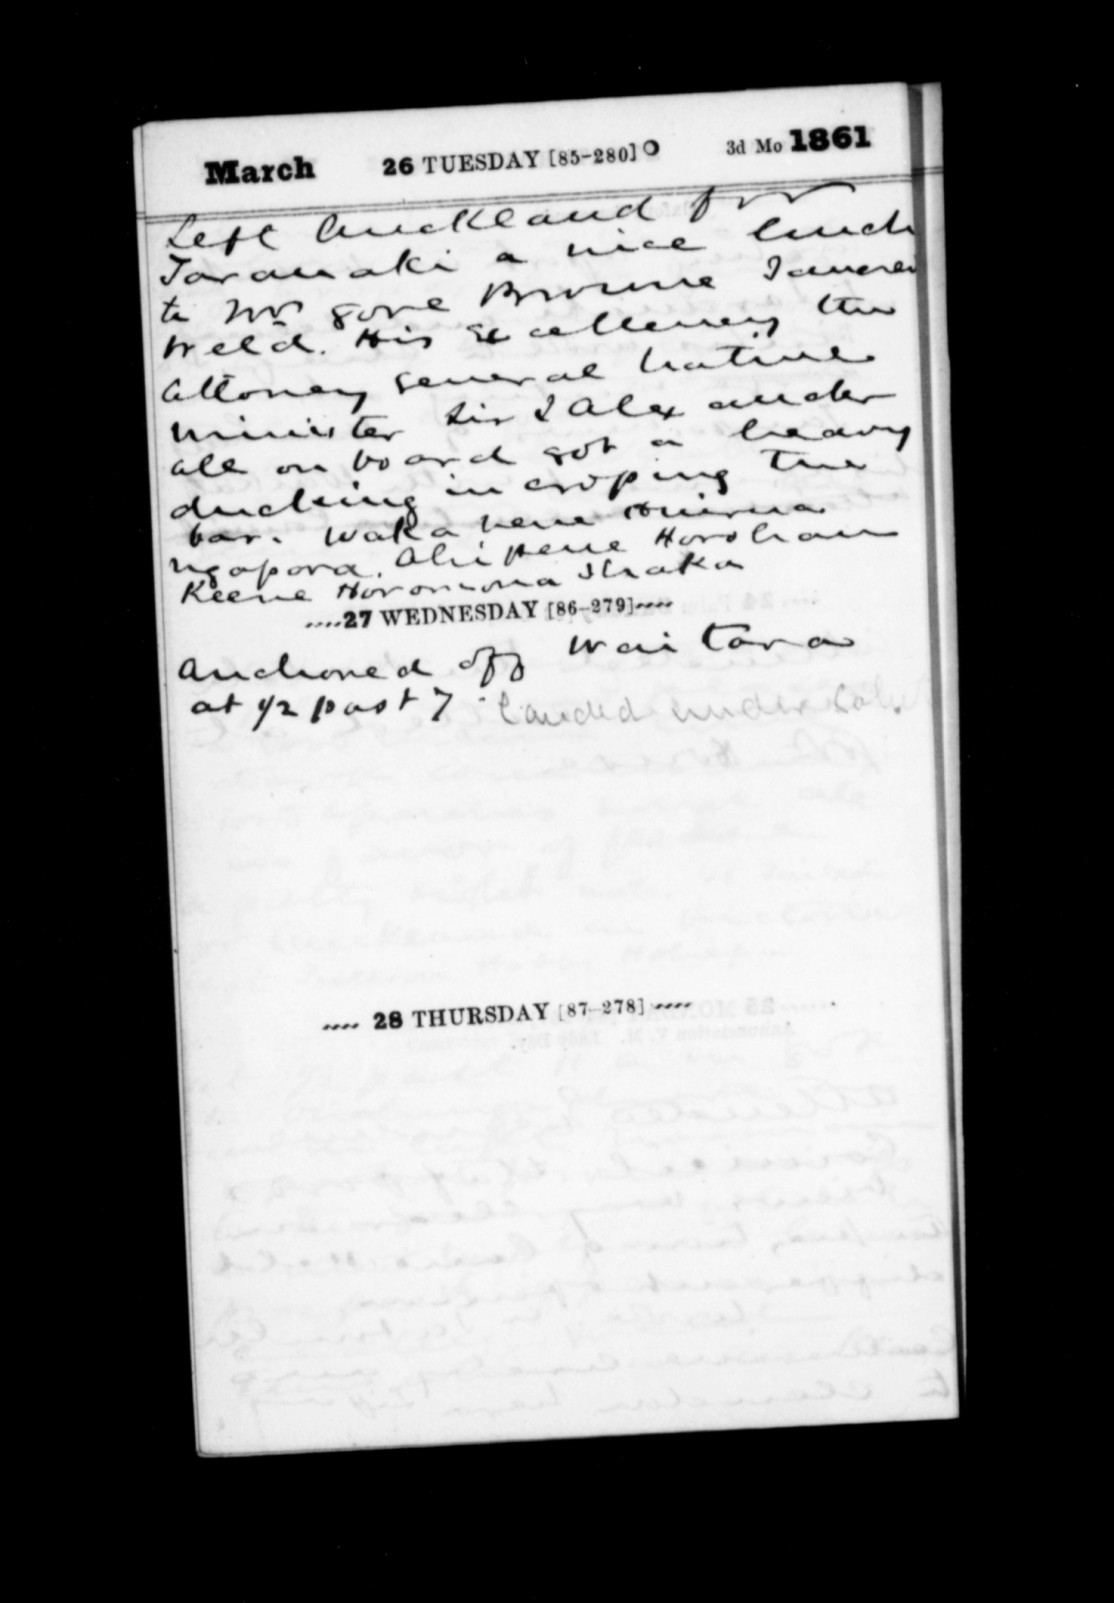 March 26 TUESDAY [85-280] O 3d Mo 1861
Left Auckland for
Taranaki a nice lunch
to Mrs Gore Browne
Weld. His Excellency the
Attorney General Native
Minister Sir J Alexander
all on board got a heavy
ducking in croping the
bar. Waka nene
ngapora.
Keene Horomona
27 WEDNESDAY [86-279]
Anchored off Waitara
at 1/2 past 7 landed under
28 THURSDAY [87-278]